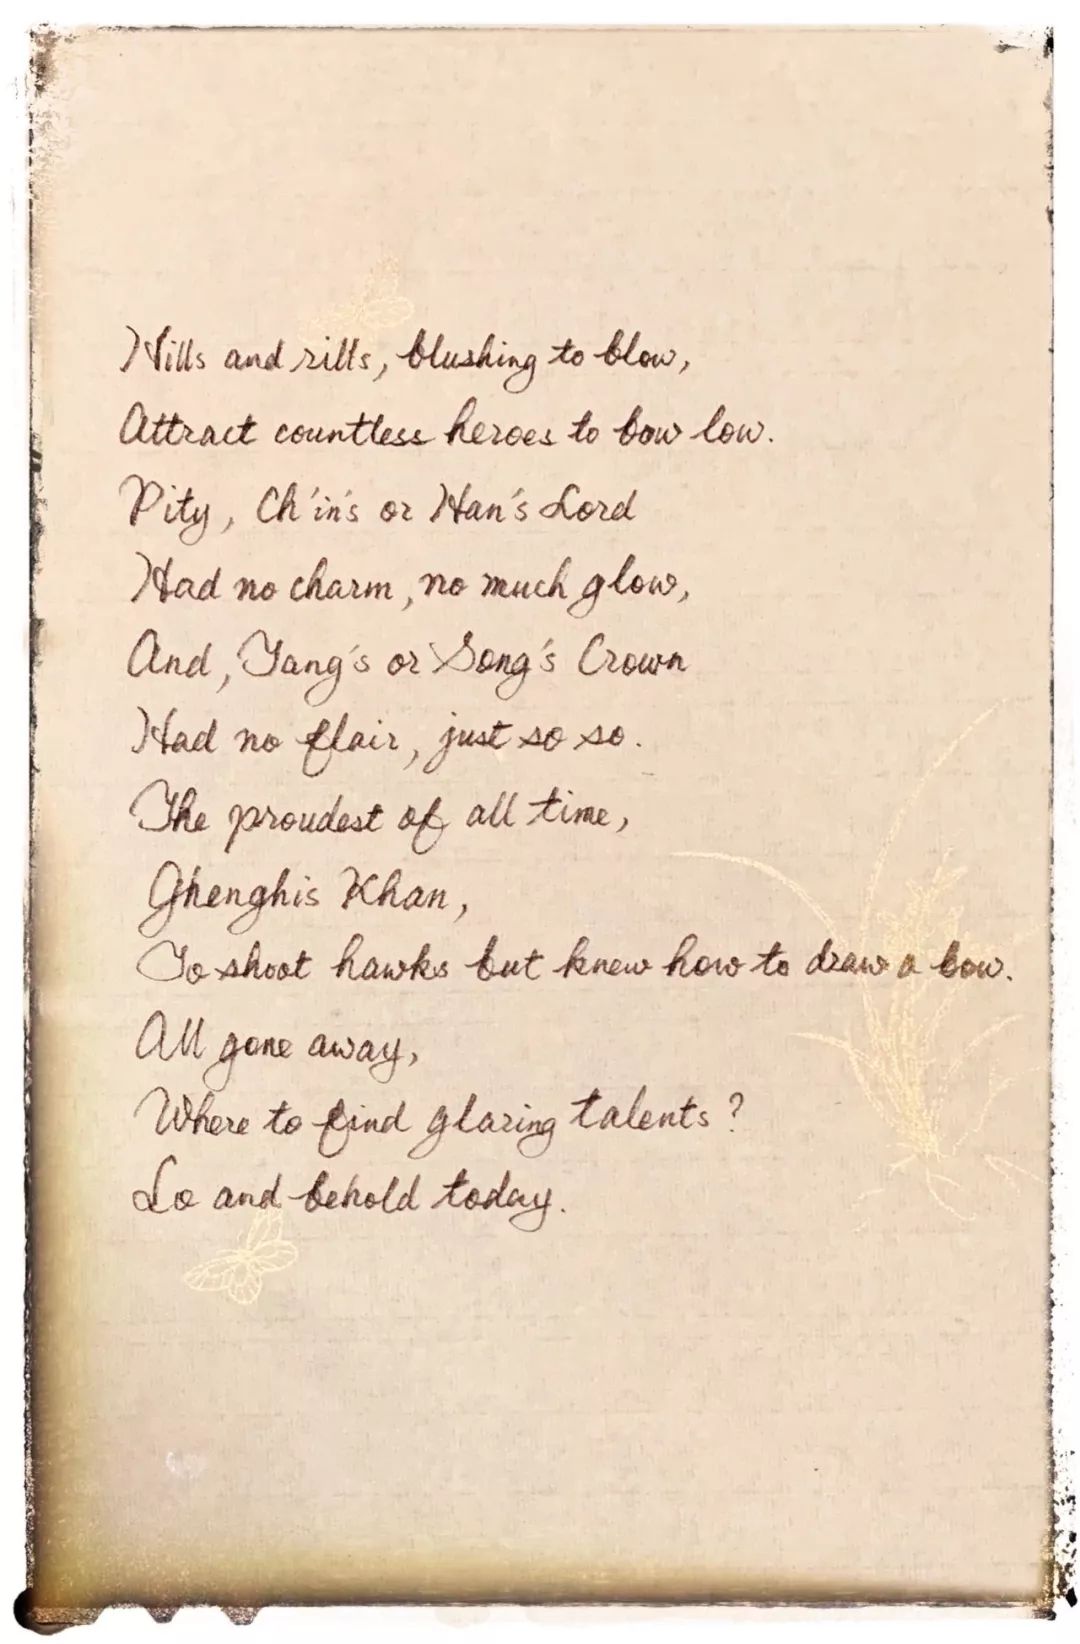 Hills and rills, blushing to blow,
Attract countless heroes to bow low.
Pity, Ch'in's or Han's Lord
Had no charm, no much glow,
And, Tang's or Song's Crown
Had no flair, just so so.
The proudest of all time,
Ghenghis Khan,
To shoot hawks but knew how to draw a bow.
All gone away,
Where to find glaring talents?
Lo and behold today.